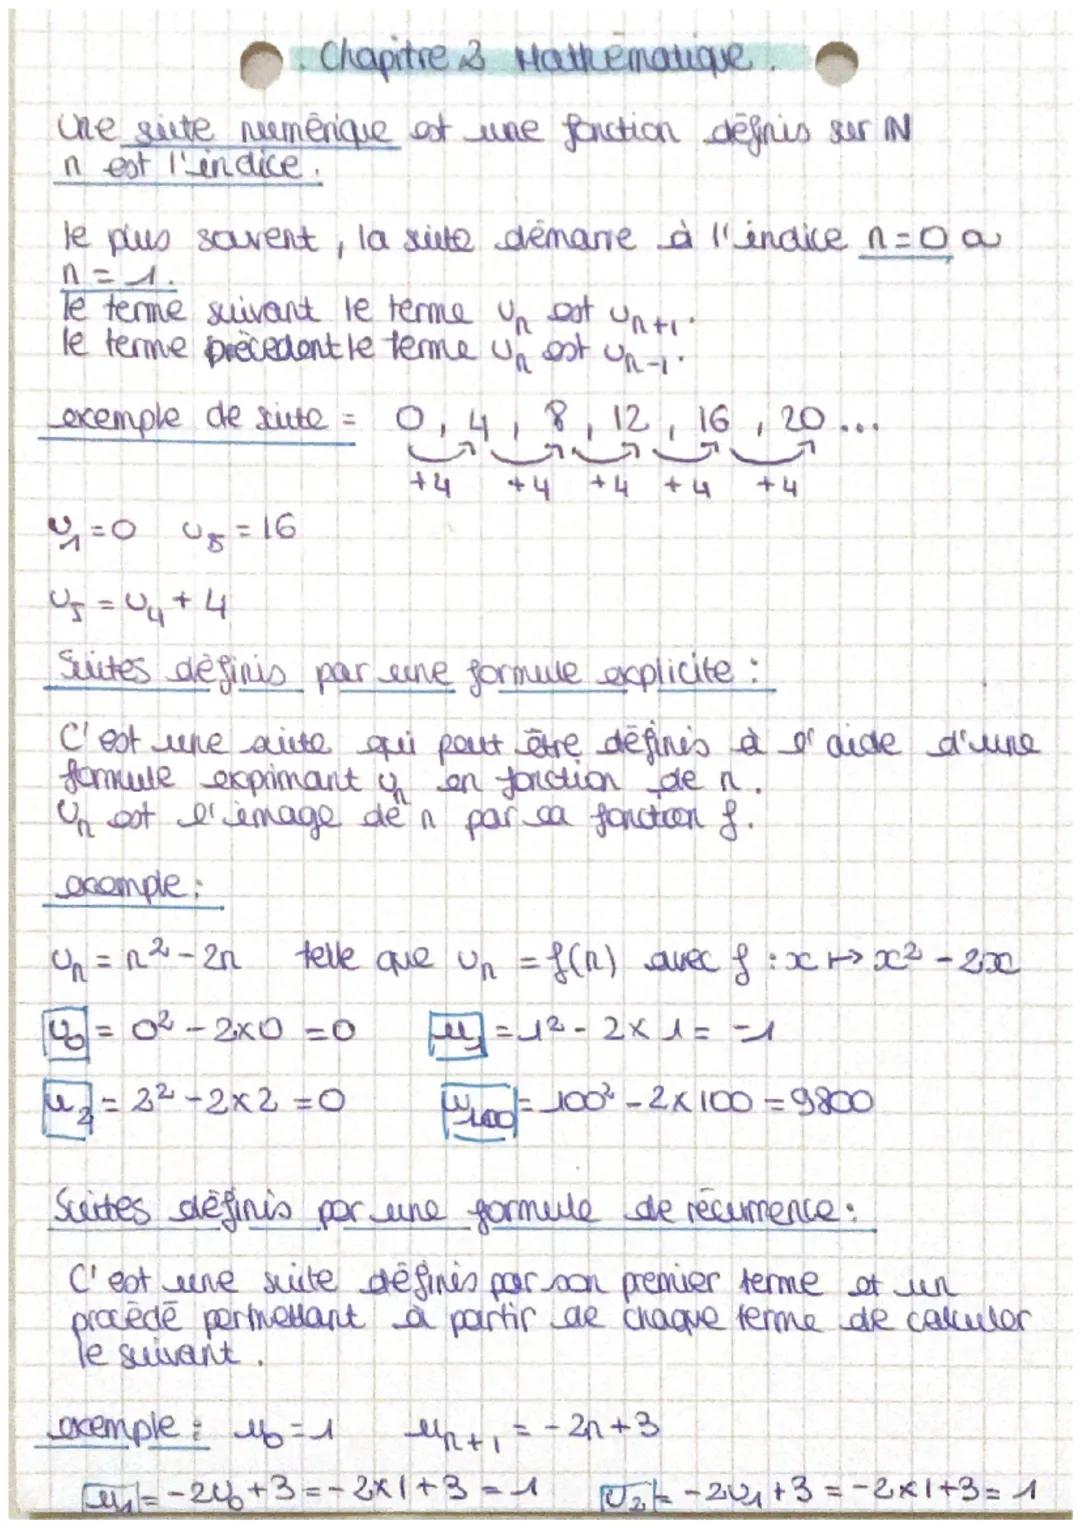 Chapitre 2 Mathématique.
Une suite numérique est une fonction définis sur ℕ
n est l'indice.
le plus souvent, la suite démarre à l'indice n=0 a
n=1.
le terme suivant le terme Uₙ est Uₙ₊₁.
le terme précedent le terme Uₙ est Uₙ₋₁.
exemple de suite = 0, 4, 8, 12, 16, 20...
+4 +4 +4 +4 +4
U₁=0 U₅=16
U₅=U₄+4
Suites définis par une formule explicite :
C'est une suite qui peut être définis à l'aide d'une
formule exprimant Uₙ en fonction de n.
Uₙ est l'image de n par sa fonction f.
exemple :
Uₙ = n²-2n telle que Uₙ = f(n) avec f : x ↦ x² - 2x
U₀ = 0² - 2×0 = 0 u₁ = 1² - 2×1 = -1
u₂ = 2² - 2×2 = 0 u₁₀₀ = 100² - 2×100 = 9800
Suites définis par une formule de récurrence :
C'est une suite définis par son premier terme et un
procédé permettant à partir de chaque terme de calculer
le suivant.
exemple : u₀=1 uₙ₊₁ = -2n+3
u₁ = -2u₀+3 = -2×1+3 = 1 U₂ = -2u₁+3 = -2×1+3 = 1